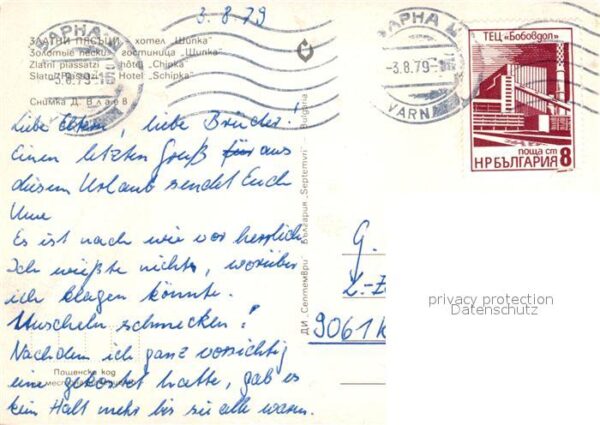 3.8.79
ЗЛАТНИ ПЯСЪЦИ – хотел „Шипка"
Золотые пески – гостиница „Шипка"
Zlatni piassatzi – hôtel „Chipka"
Slatni Passazi – Hotel „Schipka"
Снимка Д. Влаев
ВАРНА
-3.8.79-
Liebe Eltern, liebe Brüder!
Einen letzten Gruß für aus
diesem Urlaub sendet Euch
Uwe
Es ist nach wie vor herrlich.
Ich wüßte nichts, worüber
ich klagen könnte.
Muscheln schmecken!
Nachdem ich ganz vorsichtig
eine gekostet hatte, gab es
kein Halt mehr bis sie alle waren.
Пощенски код
ДИ „Септември" България „Septemvri" Bulgaria
ВАРНА
-3.8.79-
VARNA
ТЕЦ „Бобовдол"
поща ст
НРБЪЛГАРИЯ 8
G.
L.-Z
9061 K
privacy protection
Datenschutz